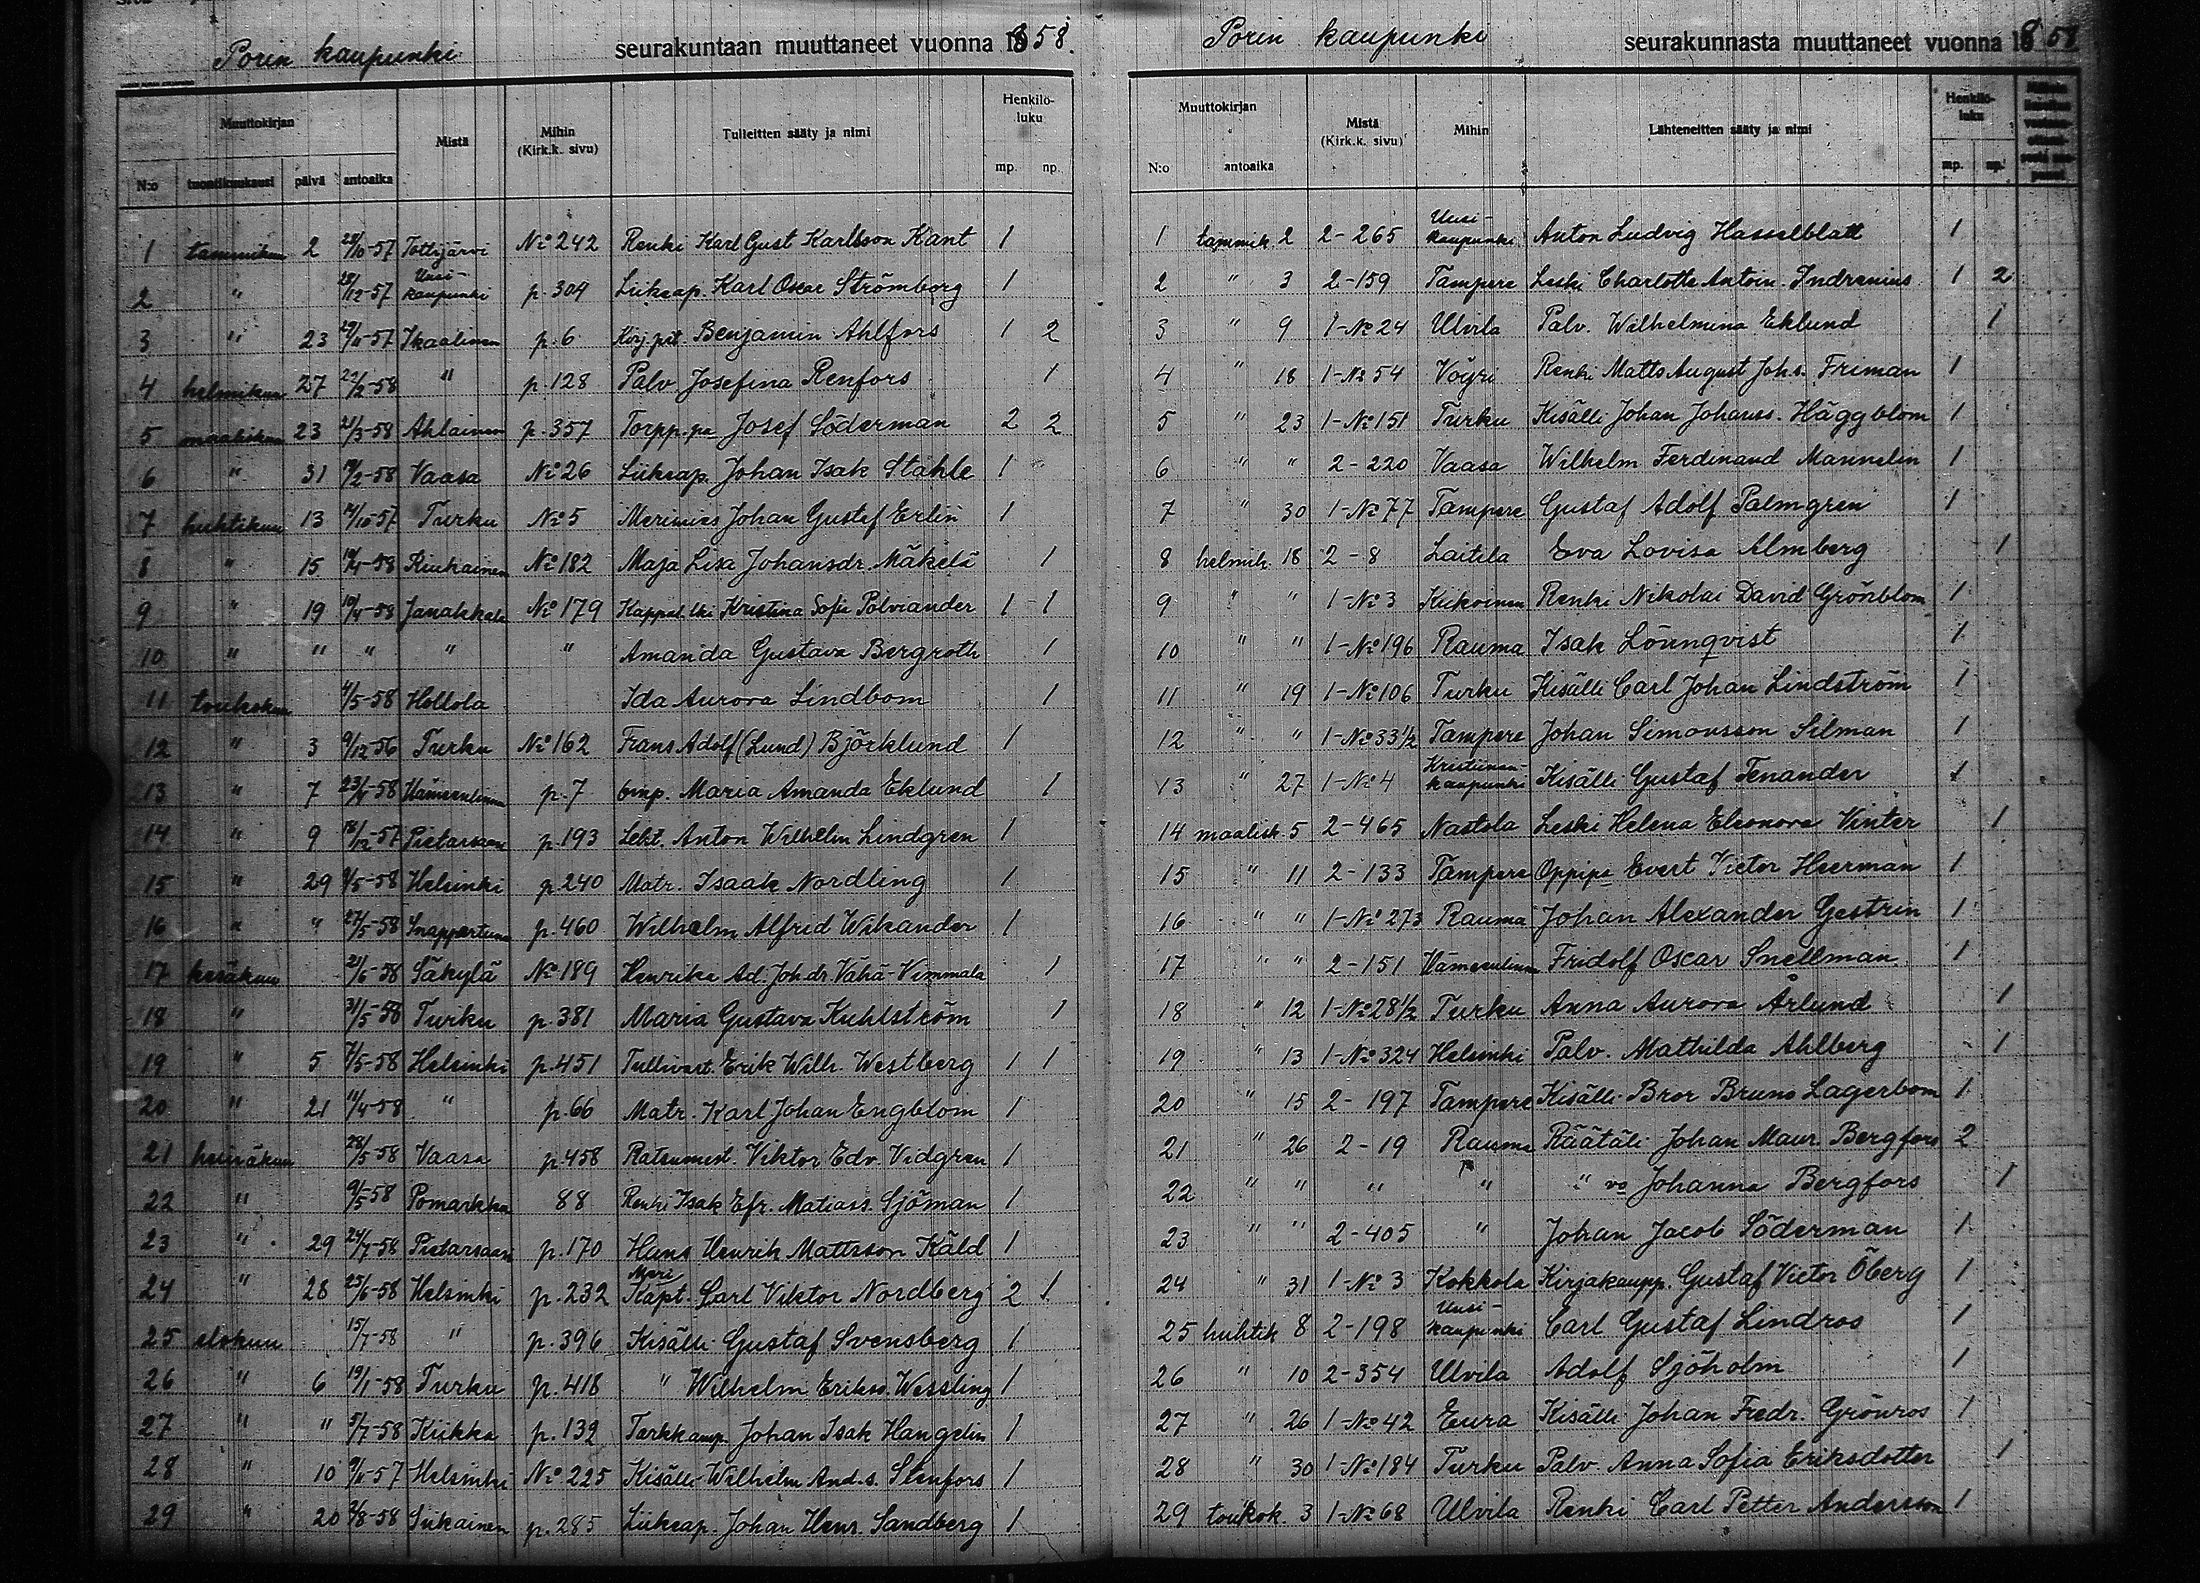 Porin kaupunki seurakuntaan muuttaneet vuonna 1858.
Muuttokirjan Mistä Mihin (Kirk.k. sivu) Tulleitten sääty ja nimi Henkilö-luku
N:o tuontikuukausi päivä antoaika mp. np.
1 tammikuu 2 28/10-57 Tottijärvi No 242 Renki Karl Gust Karlsson Kant 1
2 " 28/12-57 Uusi-kaupunki p. 304 Liikeap. Karl Oscar Strömborg 1
3 " 23 29/11-57 Ikaalinen p. 6 Kirj.pit. Benjamin Ahlfors 1 2
4 helmikuu 27 22/2-58 " p. 128 Palv. Josefina Renfors 1
5 maaliskuu 23 21/3-58 Ahlainen p. 357 Torpp.pa Josef Söderman 2 2
6 " 31 19/2-58 Vaasa No 26 Liikeap. Johan Isak Stahle 1
7 huhtikuu 13 14/10-57 Turku No 5 Merimies Johan Gustaf Erlin 1
8 " 15 10/4-58 Kiukainen No 182 Maja Lisa Johansdr. Mäkelä 1
9 " 19 10/4-58 Janakkala No 179 Kappal. lki Kristina Sofia Polviander 1 1
10 " " " " " Amanda Gustava Bergroth 1
11 toukokuu 4/5-58 Hollola Ida Aurora Lindbom 1
12 " 3 9/12-56 Turku No 162 Frans Adolf (Lund) Björklund 1
13 " 7 23/4-58 Hämeenlinna p. 7 omp. Maria Amanda Eklund 1
14 " 9 18/12-57 Pietarsaari p. 193 Lekt. Anton Wilhelm Lindgren 1
15 " 29 9/5-58 Helsinki p. 240 Matr. Isaak Nordling 1
16 " " 27/5-58 Snappertuna p. 460 Wilhelm Alfrid Wikander 1
17 kesäkuu 21/6-58 Säkylä No 189 Henrika Ad. Joh.dr. Vähä-Vimmala 1
18 " 31/5-58 Turku p. 381 Maria Gustava Kuhlström 1
19 " 5 7/5-58 Helsinki p. 451 Tullivart. Erik Wilh. Westberg 1 1
20 " 21 11/4-58 " p. 66 Matr. Karl Johan Engblom 1
21 heinäkuu 28/5-58 Vaasa p. 458 Ratsumest. Viktor Edv. Vidgren 1
22 " 9/5-58 Pomarkku 88 Renki Isak Efr. Matiass. Sjöman 1
23 " 29 24/7-58 Pietarsaari p. 170 Hans Henrik Mattsson Käld 1
24 " 28 25/6-58 Helsinki p. 232 Meri Kapt. Carl Viktor Nordberg 2 1
25 elokuu 15/7-58 " p. 396 Kisälli Gustaf Svensberg 1
26 " 6 19/1-58 Turku p. 418 " Wilhelm Erikss. Wessling 1
27 " " 5/7-58 Kiikka p. 139 Tarkkamp. Johan Isak Hangelin 1
28 " 10 9/11-57 Helsinki No 225 Kisälli Wilhelm And.s. Stenfors 1
29 " 20 2/8-58 Siikainen p. 285 Liikeap. Johan Henr. Sandberg 1
Porin kaupunki seurakunnasta muuttaneet vuonna 1858
Muuttokirjan Mistä (Kirk.k. sivu) Mihin Lähteneitten sääty ja nimi Henkilö-luku
N:o antoaika mp. np.
1 tammik. 2 2-265 Uusi-kaupunki Anton Ludvig Hasselblatt 1
2 " 3 2-159 Tampere Leski Charlotte Antoin. Indrenius 1 2
3 " 9 1-No 24 Ulvila Palv. Wilhelmina Eklund 1
4 " 18 1-No 54 Vöyri Renki Matts August Johs. Friman 1
5 " 23 1-No 151 Turku Kisälli Johan Johanss. Häggblom 1
6 " " 2-220 Vaasa Wilhelm Ferdinand Mannelin 1
7 " 30 1-No 77 Tampere Gustaf Adolf Palmgren 1
8 helmik. 18 2-8 Laitila Eva Lovisa Almberg 1
9 " " 1-No 3 Kiikoinen Renki Nikolai David Grönblom 1
10 " " 1-No 196 Rauma Isak Lönnqvist 1
11 " 19 1-No 106 Turku Kisälli Carl Johan Lindström 1
12 " " 1-No 33 1/2 Tampere Johan Simonsson Silman 1
13 " 27 1-No 4 Kristiinan-kaupunki Kisälli Gustaf Tenander 1
14 maalisk. 5 2-465 Nastola Leski Helena Eleonora Vinter 1
15 " 11 2-133 Tampere Oppipa Evert Victor Heerman 1
16 " " 1-No 273 Rauma Johan Alexander Gestrin 1
17 " " 2-151 Hämeenlinna Fridolf Oscar Snellman 1
18 " 12 1-No 28 1/2 Turku Anna Aurora Årlund 1
19 " 13 1-No 324 Helsinki Palv. Mathilda Ahlberg 1
20 " 15 2-197 Tampere Kisälli Bror Bruno Lagerbom 1
21 " 26 2-19 Rauma Räätäli Johan Maur. Bergfors 2
22 " " " " " vo Johanna Bergfors 1
23 " " 2-405 " Johan Jacob Söderman 1
24 " 31 1-No 3 Kokkola Kirjakaupp. Gustaf Victor Öberg 1
25 huhtik 8 2-198 Uusi-kaupunki Carl Gustaf Lindros 1
26 " 10 2-354 Ulvila Adolf Sjöholm 1
27 " 26 1-No 42 Eura Kisälli Johan Fredr. Grönros 1
28 " 30 1-No 184 Turku Palv. Anna Sofia Eriksdotter 1
29 toukok. 3 1-No 68 Ulvila Renki Carl Petter Andersson 1